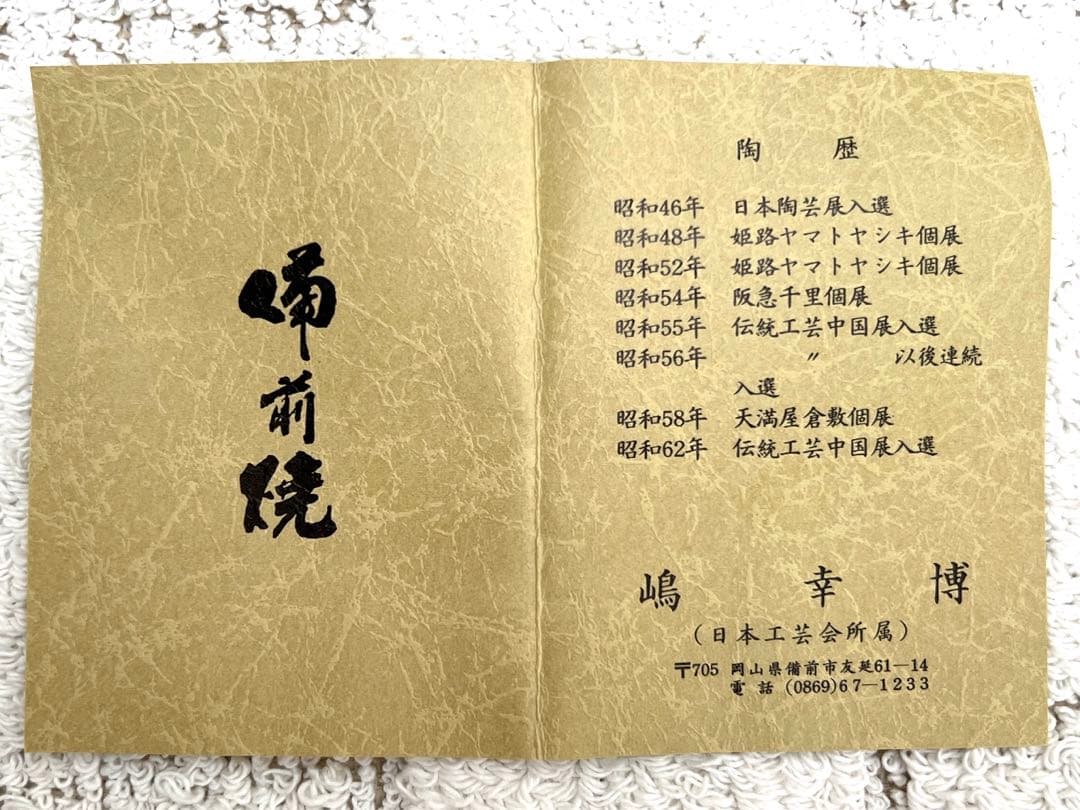 備前焼
陶歴
昭和46年 日本陶芸展入選
昭和48年 姫路ヤマトヤシキ個展
昭和52年 姫路ヤマトヤシキ個展
昭和54年 阪急千里個展
昭和55年 伝統工芸中国展入選
昭和56年 〃 以後連続
入選
昭和58年 天満屋倉敷個展
昭和62年 伝統工芸中国展入選
嶋幸博
(日本工芸会所属)
〒705 岡山県備前市友延61—14
電話 (0869)67—1233